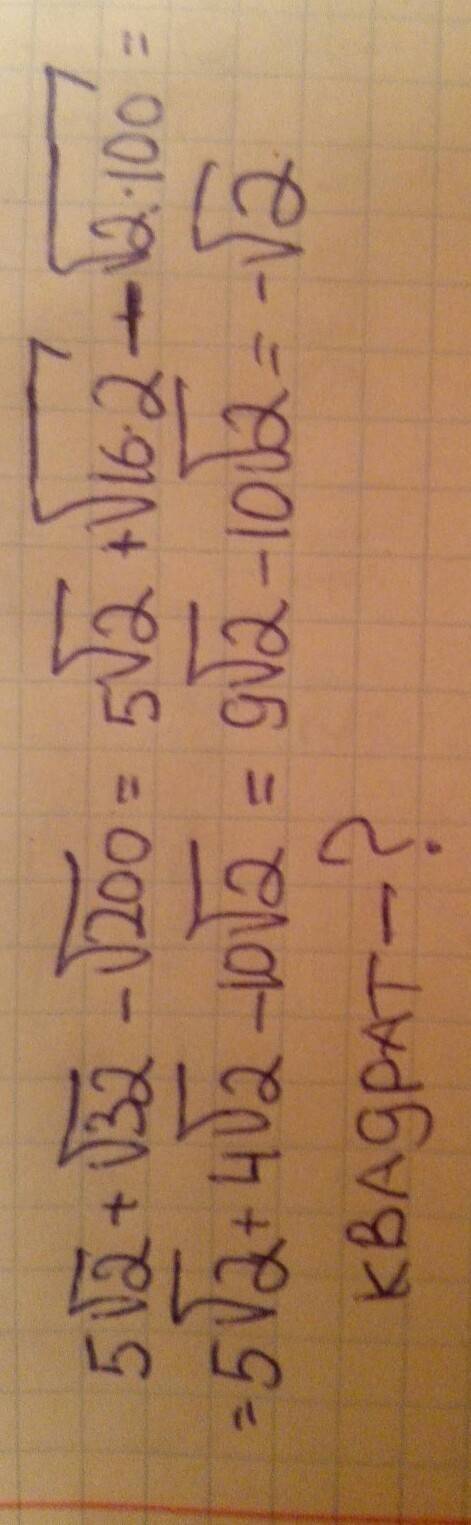 5√2 + √32 - √200 = 5√2 + √16·2 - √2·100 =
= 5√2 + 4√2 - 10√2 = 9√2 - 10√2 = -√2
КВАДРАТ - ?